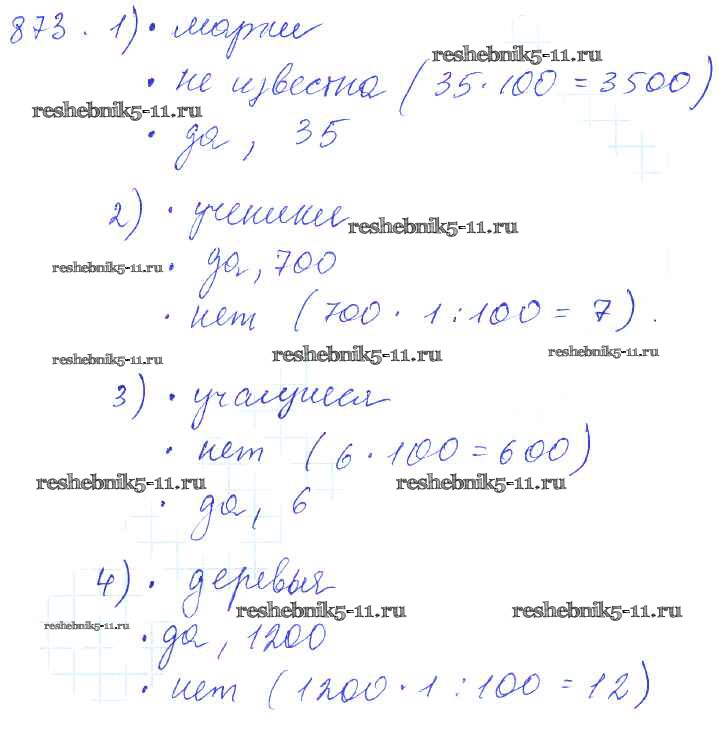 873. 1) • марки
reshebnik5-11.ru
• не известна (35·100=3500)
reshebnik5-11.ru
• да, 35
2) • ученики
reshebnik5-11.ru
reshebnik5-11.ru • да, 700
• нет (700·1:100=7).
reshebnik5-11.ru reshebnik5-11.ru reshebnik5-11.ru
3) • учащиеся
• нет (6·100=600)
reshebnik5-11.ru reshebnik5-11.ru
• да, 6
4) • деревья
reshebnik5-11.ru reshebnik5-11.ru
reshebnik5-11.ru
• да, 1200
• нет (1200·1:100=12)